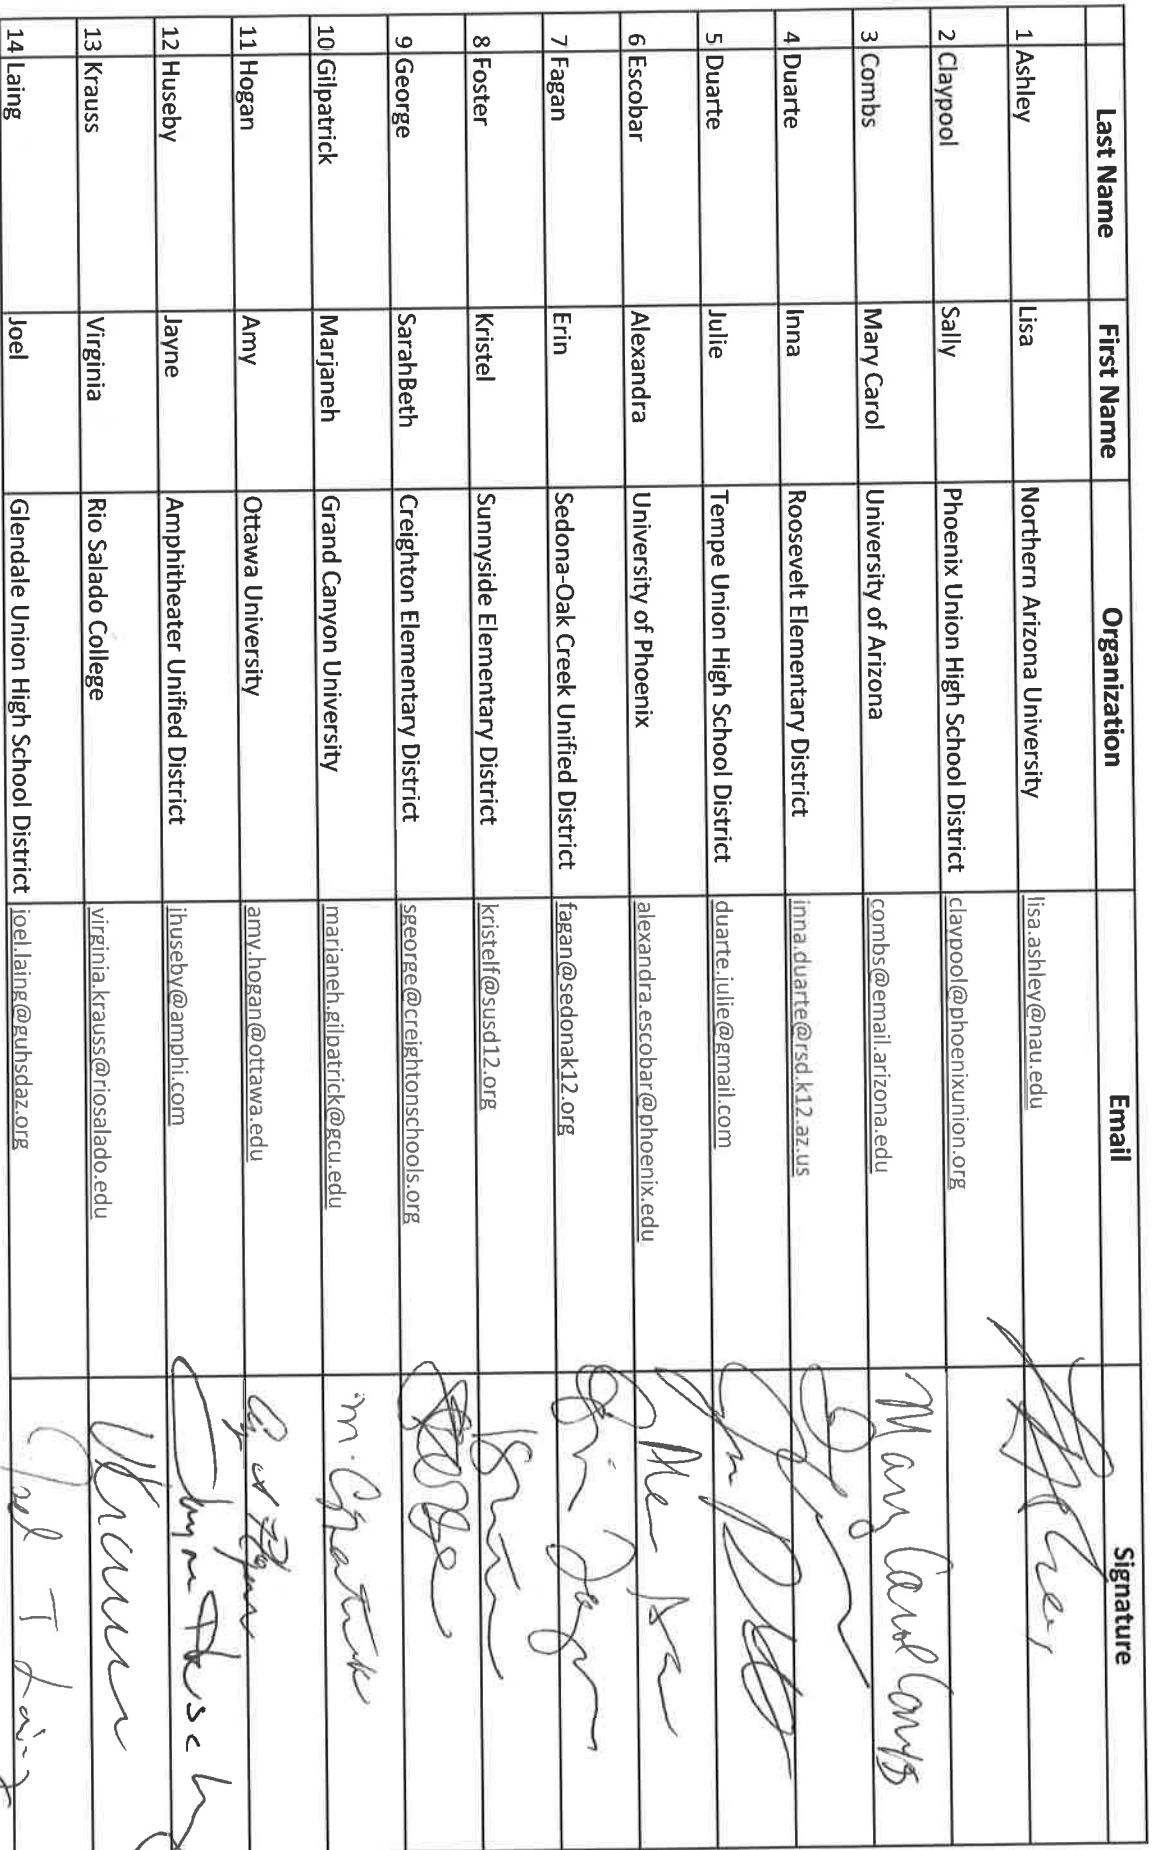 Last Name First Name Organization Email Signature
1 Ashley Lisa Northern Arizona University lisa.ashley@nau.edu
2 Claypool Sally Phoenix Union High School District claypool@phoenixunion.org
3 Combs Mary Carol University of Arizona combs@email.arizona.edu Mary Carol Combs
4 Duarte Inna Roosevelt Elementary District inna.duarte@rsd.k12.az.us
5 Duarte Julie Tempe Union High School District duarte.julie@gmail.com
6 Escobar Alexandra University of Phoenix alexandra.escobar@phoenix.edu
7 Fagan Erin Sedona-Oak Creek Unified District fagan@sedonak12.org Erin Fagan
8 Foster Kristel Sunnyside Elementary District kristelf@susd12.org
9 George SarahBeth Creighton Elementary District sgeorge@creightonschools.org
10 Gilpatrick Marjaneh Grand Canyon University marjaneh.gilpatrick@gcu.edu
11 Hogan Amy Ottawa University amy.hogan@ottawa.edu
12 Huseby Jayne Amphitheater Unified District jhuseby@amphi.com
13 Krauss Virginia Rio Salado College virginia.krauss@riosalado.edu
14 Laing Joel Glendale Union High School District joel.laing@guhsdaz.org Joel T Laing